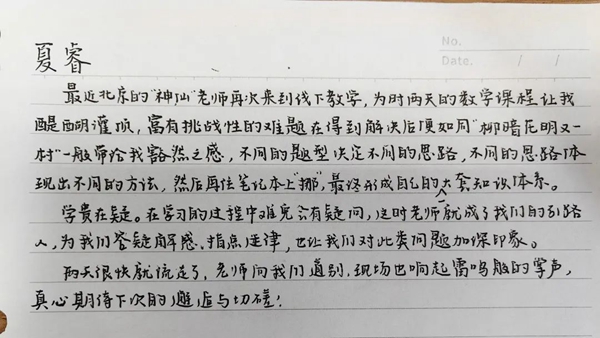 No.
Date. / /
夏睿
最近北京的“神仙”老师再次来到线下教学，为时两天的数学课程让我
醍醐灌顶，富有挑战性的难题在得到解决后便如同“柳暗花明又一
村”一般带给我豁然之感，不同的题型决定不同的思路，不同的思路体
现出不同的方法，然后再往笔记本上“挪”，最终形成自己的一大套知识体系。
学贵在疑。在学习的过程中难免会有疑问，这时老师就成了我们的引路
人，为我们答疑解惑、指点迷津，也让我们对此类问题加深印象。
两天很快就流逝了，老师向我们道别，现场也响起雷鸣般的掌声，
真心期待下次的邂逅与切磋！